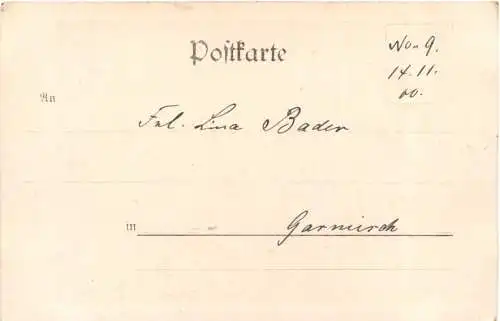 Postkarte
No. 9.
14.11.
00.
An
Frl. Lina Bader
in
Garmisch